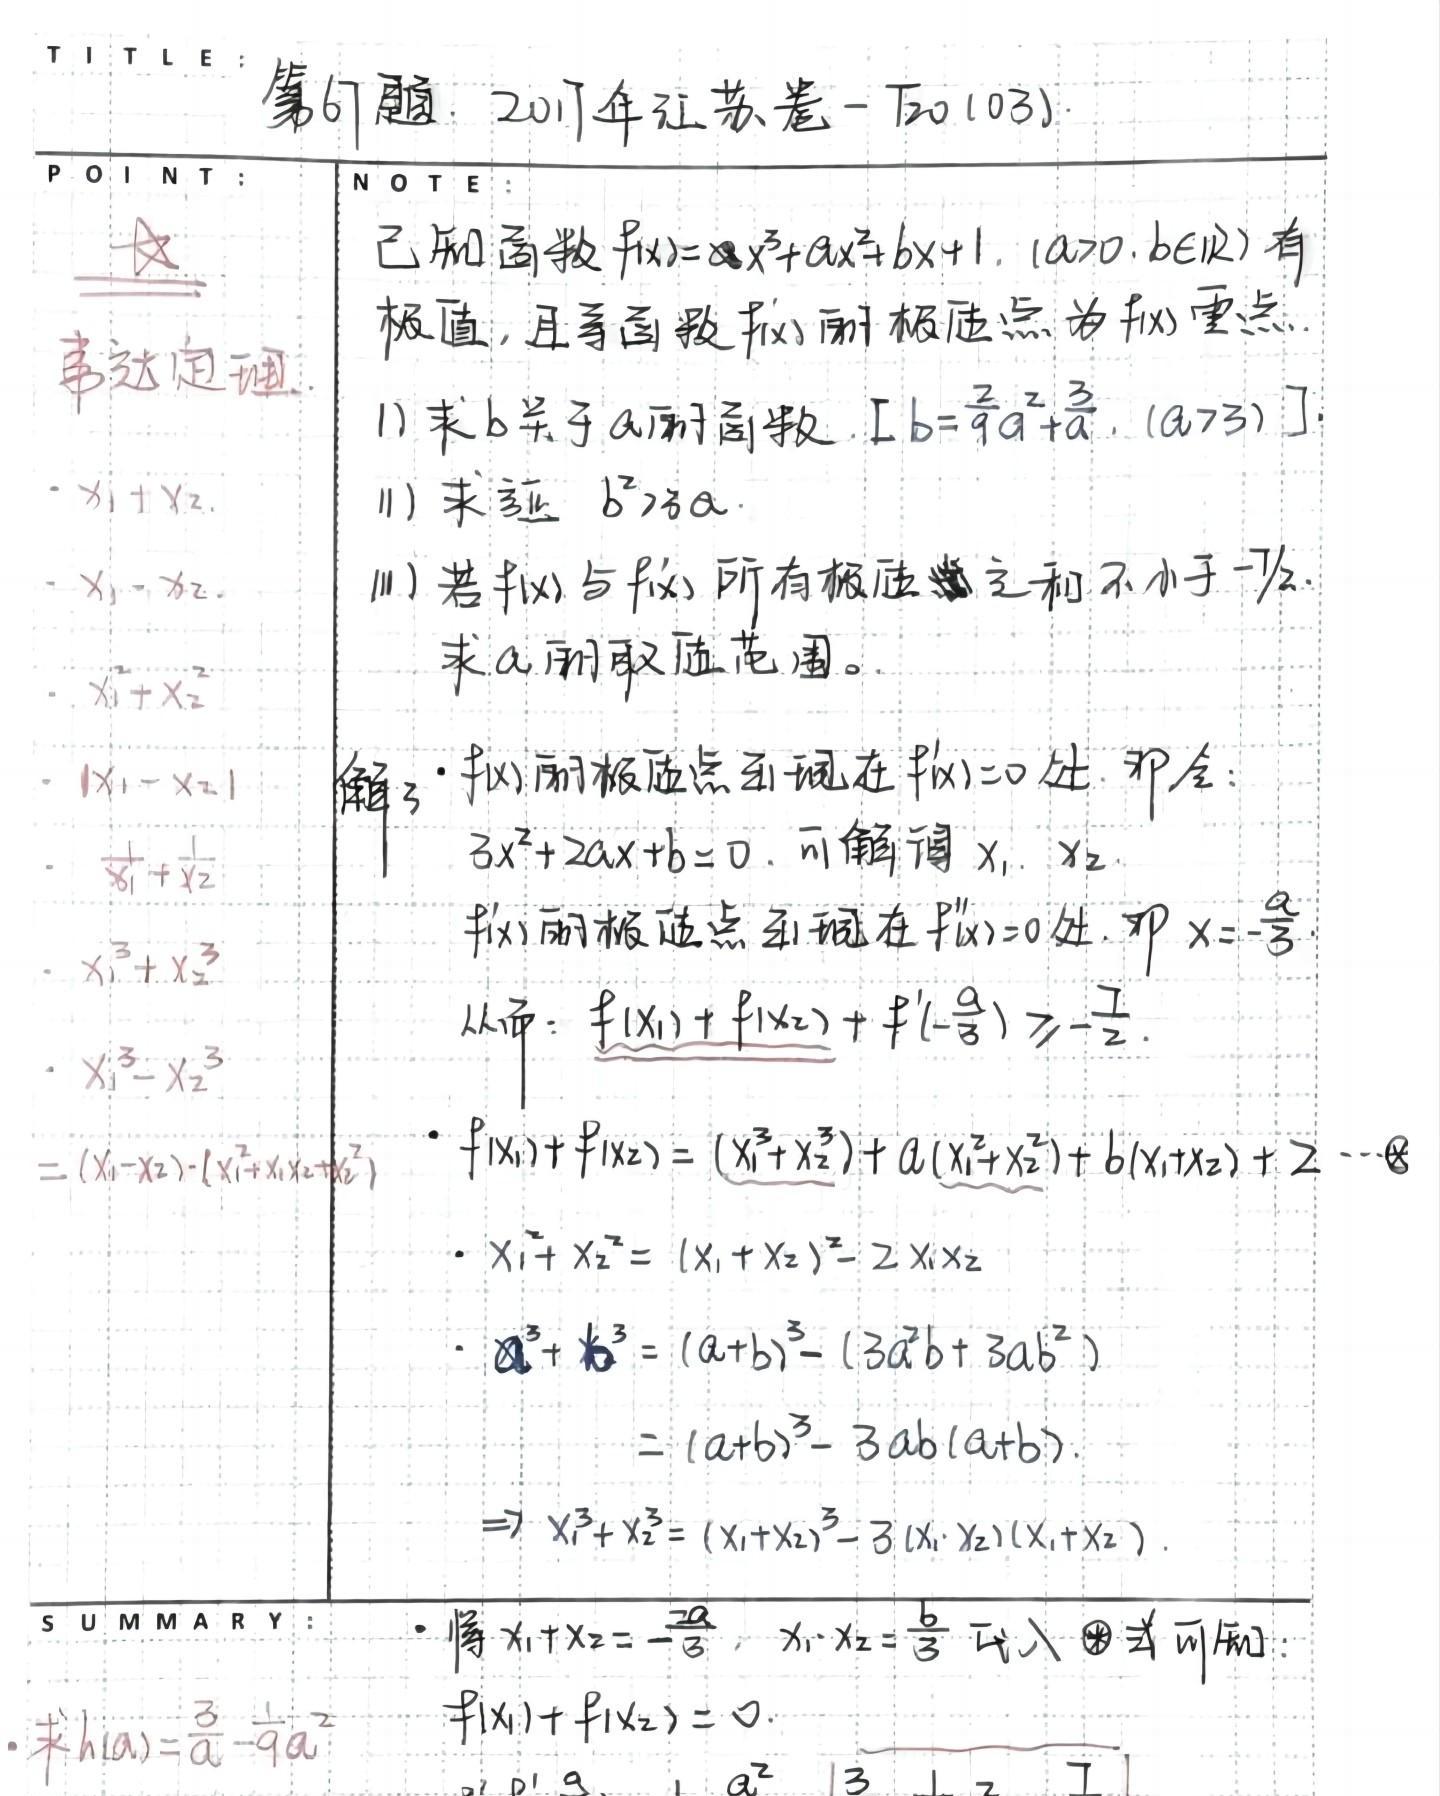 TITLE:
第67题. 2017年江苏卷-T20(03).
POINT:
☆
韦达定理.
· x₁+x₂.
· x₁-x₂.
· x₁²+x₂²
· |x₁-x₂|
· 1/x₁+1/x₂
· x₁³+x₂³
· x₁³-x₂³
=(x₁-x₂)·(x₁²+x₁x₂+x₂²)
NOTE:
已知函数f(x)=x³+ax²+bx+1.(a>0.b∈R)有
极值,且导函数f'(x)的极值点为f(x)零点.
I) 求b关于a的函数.[b=2/9a²+3/a.(a>3)].
II) 求证 b²>3a.
III) 若f(x)与f'(x)所有极值之和不小于-7/2.
求a的取值范围。
解: · f(x)的极值点出现在f'(x)=0处.即令:
3x²+2ax+b=0.可解得 x₁. x₂.
f'(x)的极值点出现在f''(x)=0处.即 x=-a/3.
从而: f(x₁)+f(x₂)+f'(-a/3)≥-7/2.
· f(x₁)+f(x₂)=(x₁³+x₂³)+a(x₁²+x₂²)+b(x₁+x₂)+2 ---⊛
· x₁²+x₂²=(x₁+x₂)²-2x₁x₂
· a³+b³=(a+b)³-(3a²b+3ab²)
=(a+b)³-3ab(a+b).
⇒ x₁³+x₂³=(x₁+x₂)³-3(x₁·x₂)(x₁+x₂).
SUMMARY:
· 求h(a)=3/a-1/9a²
· 将x₁+x₂=-2a/3, x₁·x₂=b/3 代入⊛式可知:
f(x₁)+f(x₂)=0.